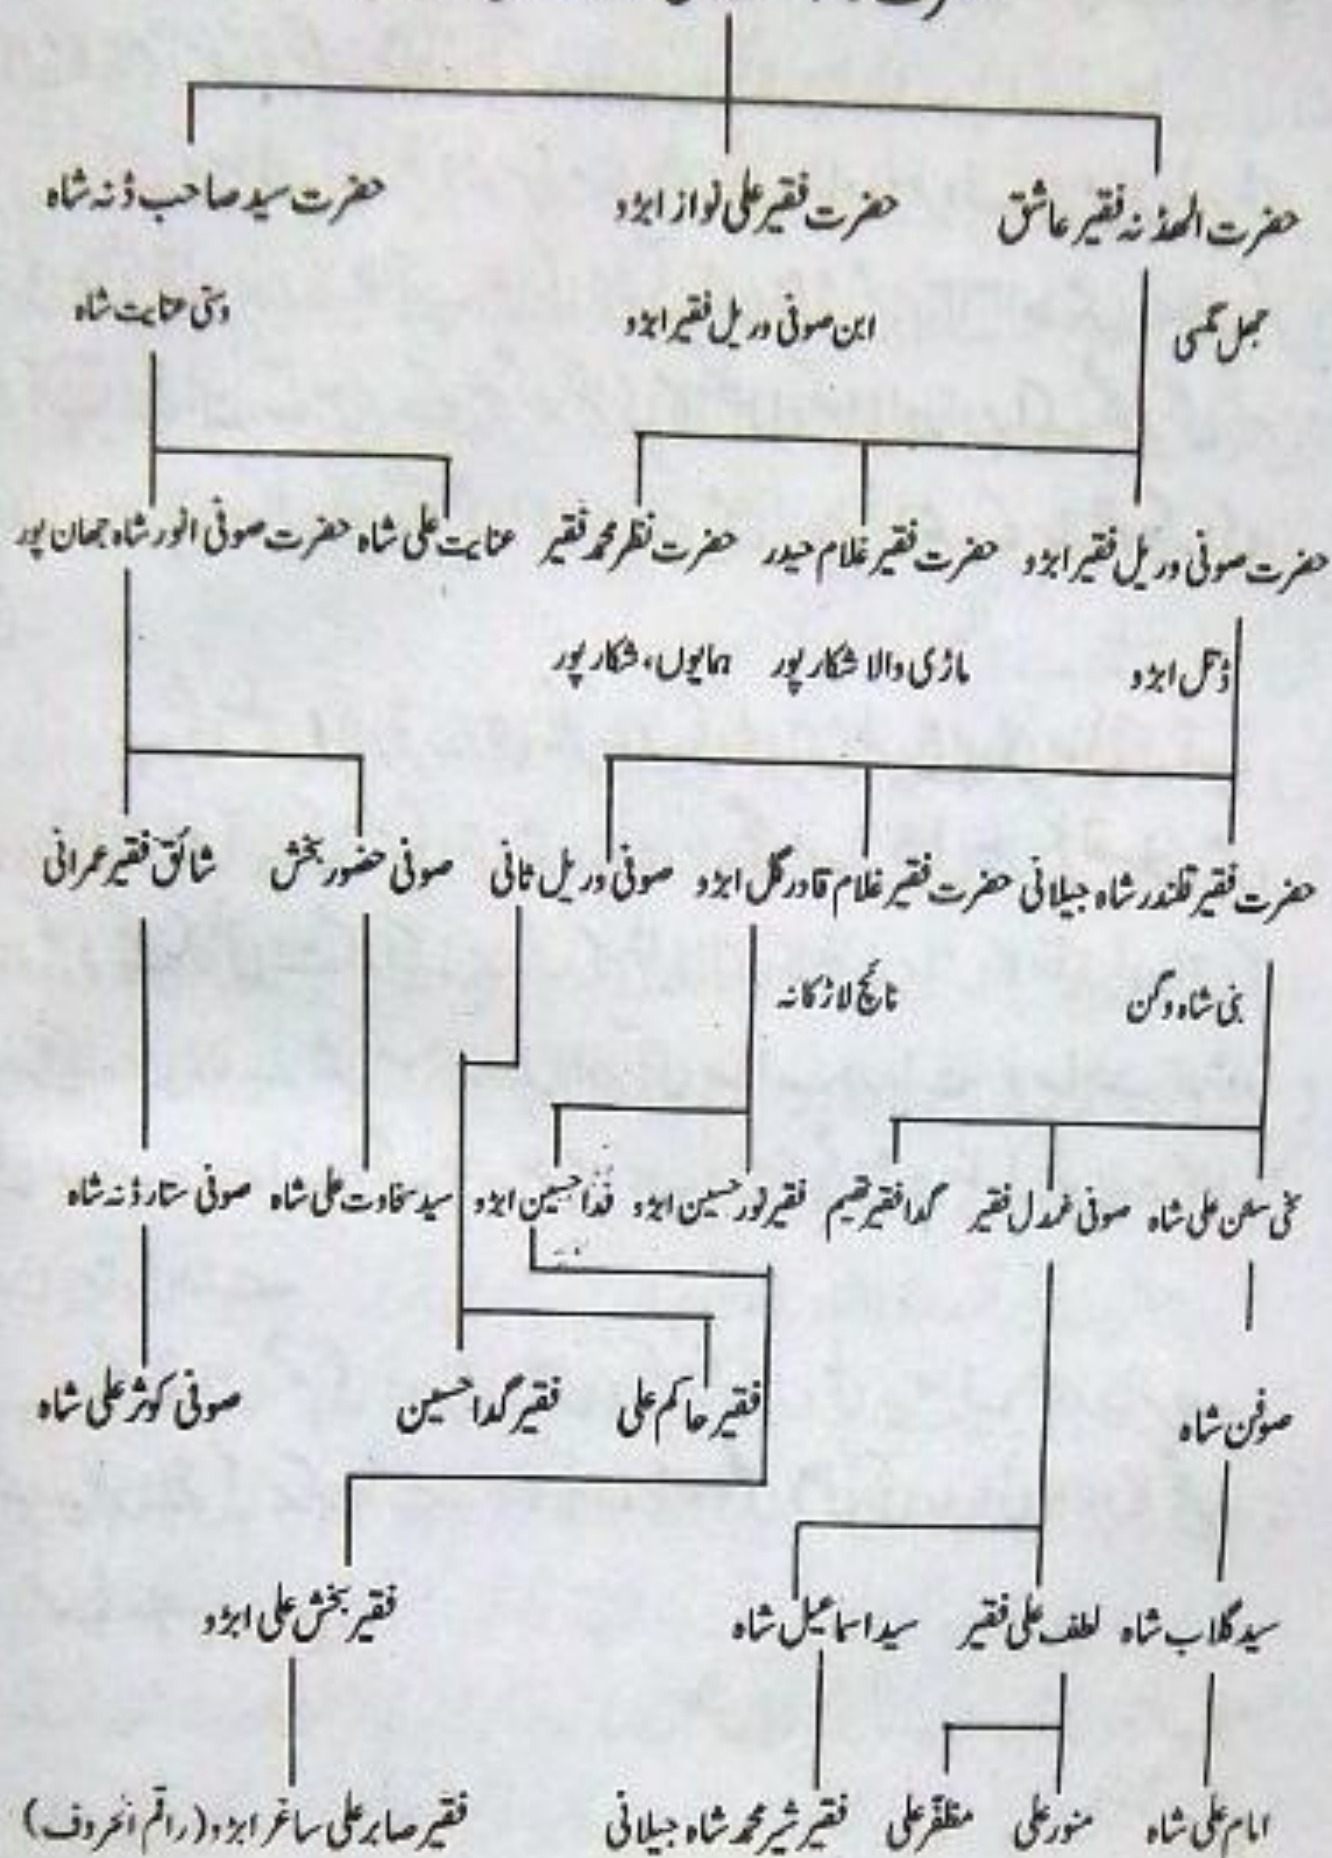 حضرت الهڏنہ فقیر عاشق حضرت فقیر علی نواز ابڑو حضرت سید صاحب ڈنہ شاہ
جھل مگسی ابن صوفی دریل فقیر ابڑو وستی عنایت شاہ
حضرت صوفی دریل فقیر ابڑو حضرت فقیر غلام حیدر حضرت نظر محمد فقیر عنایت علی شاہ حضرت صوفی انور شاہ جھان پور
ڈتل ابڑو ماڑی والا شکارپور ہمایوں، شکارپور
حضرت فقیر قلندر شاہ جیلانی حضرت فقیر غلام قادر گل ابڑو صوفی دریل ثانی صوفی حضور بخش شائق فقیر عمرانی
بنی شاہ وگن نائچ لاڑکانہ
سخی علی شاہ صوفی غمدل فقیر گدا فقیر تھیم فقیر نور حسین ابڑو فدا حسین ابڑو سید سخاوت علی شاہ صوفی ستار ڈنہ شاہ
صوفن شاہ فقیر حاکم علی فقیر گدا حسین صوفی کوثر علی شاہ
سید گلاب شاہ لطف علی فقیر سید اسماعیل شاہ فقیر بخش علی ابڑو
امام علی شاہ منور علی مظفر علی فقیر شیر محمد شاہ جیلانی فقیر صابر علی ساغر ابڑو (راقم الحروف)